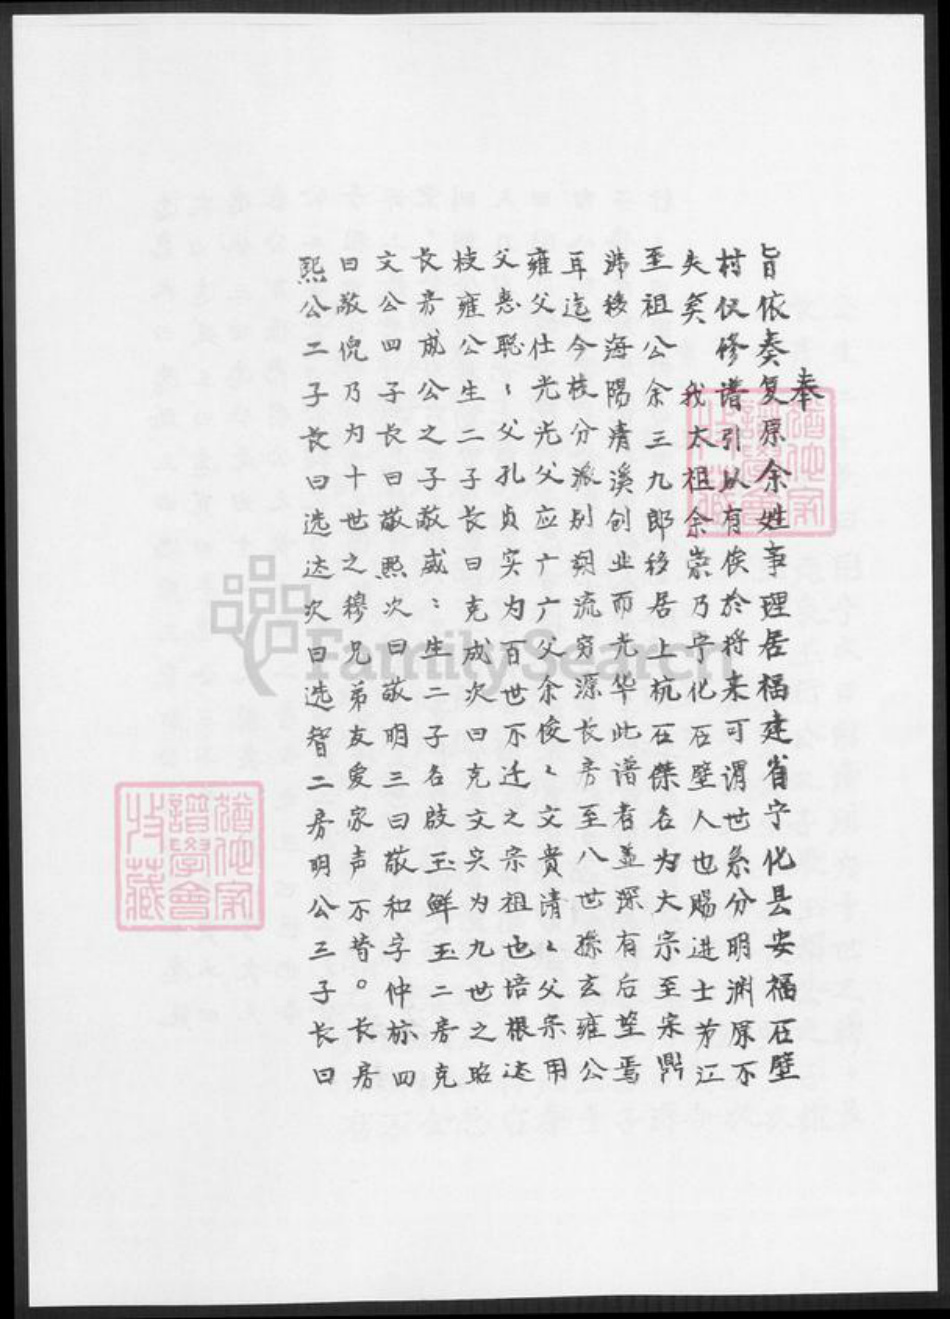 奉
旨依奏复原余姓事理居福建省宁化县安福石壁
村仅修谱引以有俟於将来可谓世系分明渊原不
失矣 我太祖余崇乃宁化石壁人也赐进士芳江
至祖公余三九郎移居上杭石傑名为大宗至宋鼎
沸移海陽清溪创业而光华此谱者盖深有后望焉
耳迄今枝分派别朔流穷源长房至八世孫玄雍公
雍父仕光光父应广广父余俊〻文贵清〻父宗用
父惠聪〻父孔贞实为百世不迁之宗祖也培根达
枝雍公生二子长曰克成次曰克文实为九世之昭
长房成公之子敬威〻生二子名啟玉鮮玉二房克
文公四子长曰敬熙次曰敬明三曰敬和字仲标四
曰敬倪乃为十世之穆兄弟友爱家声不替。长房
熙公二子长曰选达次曰选智二房明公三子长曰
猶他家
譜學會
收藏
猶他家
譜學會
收藏
FamilySearch